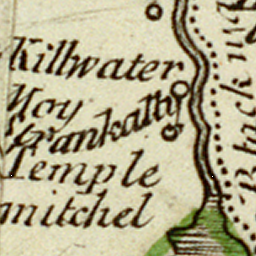 Killwater
Moy
Frankatty
Temple
mitchel
Black w